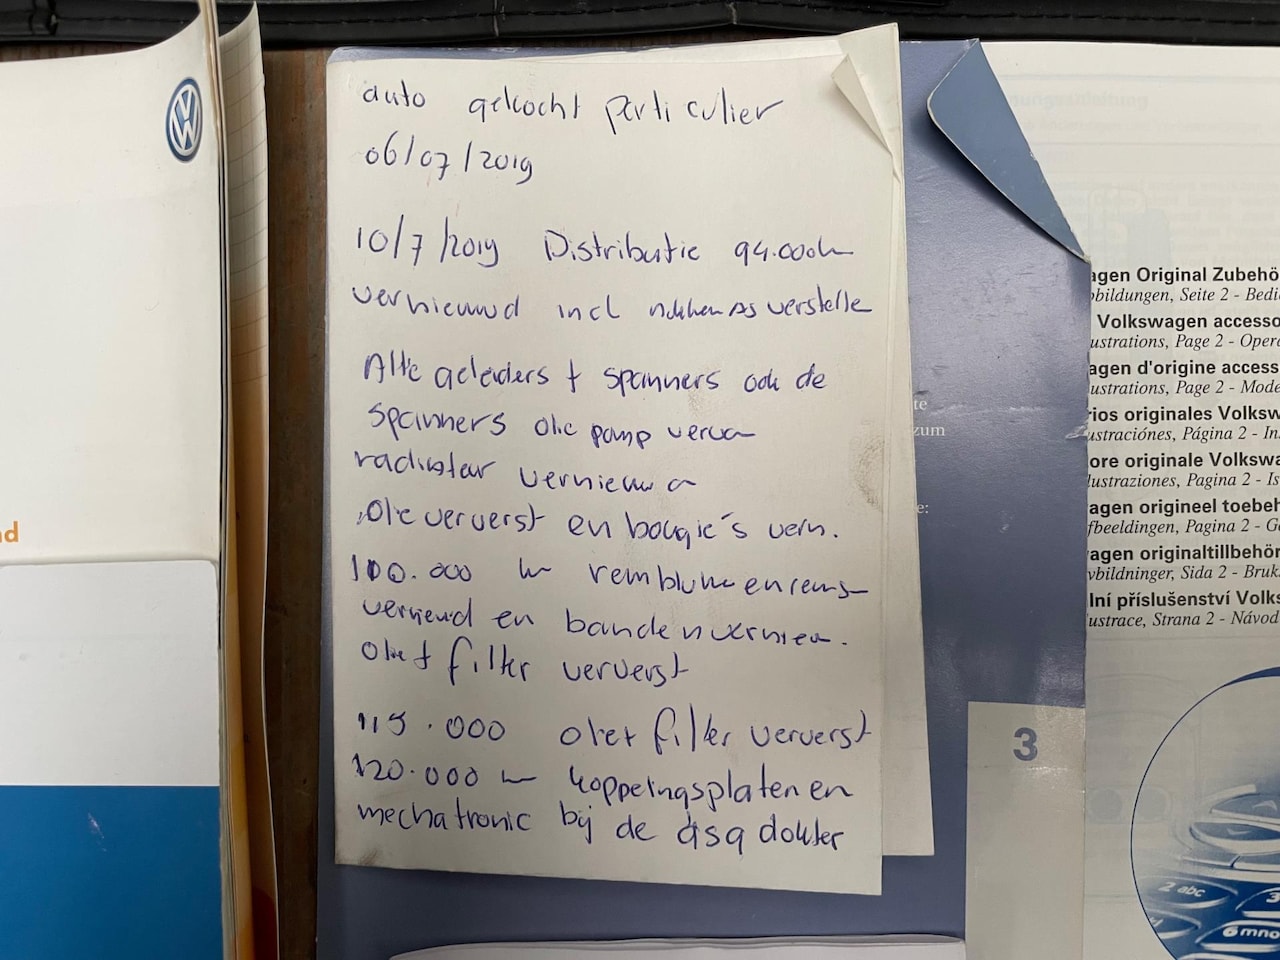 auto gekocht particulier
06/07/2019
10/7/2019 Distributie 94.000km
vernieuwd incl nokkenas verstelle
Alle geleiders + spanners ook de
spanners olie pomp verva
radiateur vernieuwd
Olie ververst en bougie's vern.
100.000 km remblokken en rems
vernieuwd en banden vernieu.
Olie + filter ververst
115.000 olie + filter ververst
120.000 km koppelingsplaten en
mechatronic bij de dsg dokter
VW
d
te
zum
e:
agen Original Zubehö
bbildungen, Seite 2 - Bedi
Volkswagen accesso
ustrations, Page 2 - Opera
agen d'origine access
ustrations, Page 2 - Mode
rios originales Volksw
ustraciónes, Página 2 - In
ore originale Volkswa
lustraziones, Pagina 2 - Is
agen origineel toebeh
fbeeldingen, Pagina 2 - G
wagen originaltillbehör
vbildninger, Sida 2 - Bruk
lní příslušenství Volks
ustrace, Strana 2 - Návod
3
2 abc
3
6 mno